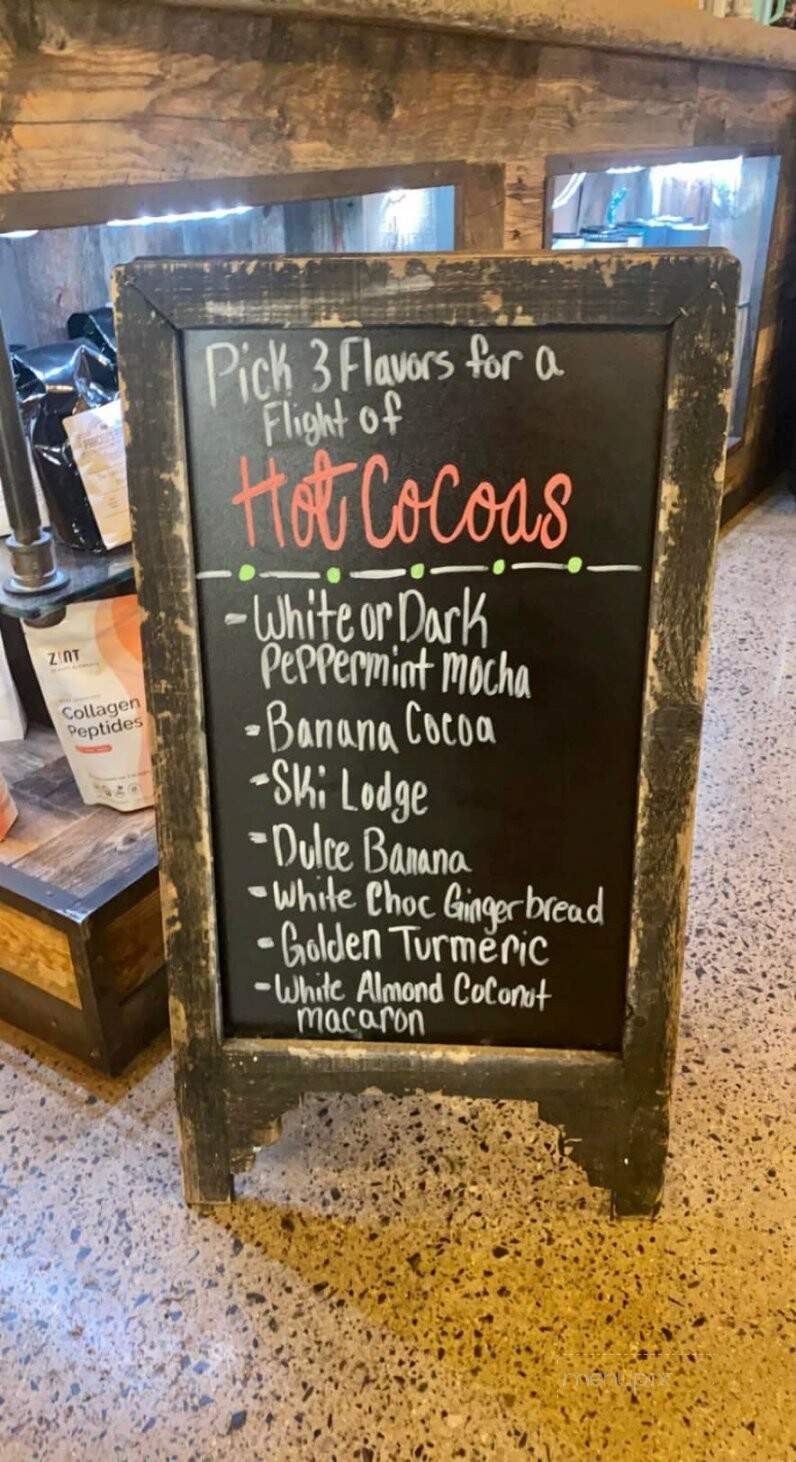 Pick 3 Flavors for a
Flight of
Hot Cocoas
- White or Dark
Peppermint mocha
- Banana Cocoa
- Ski Lodge
- Dulce Banana
- White Choc Gingerbread
- Golden Turmeric
- White Almond Coconut
macaron
ZINT
Collagen
Peptides
menupix